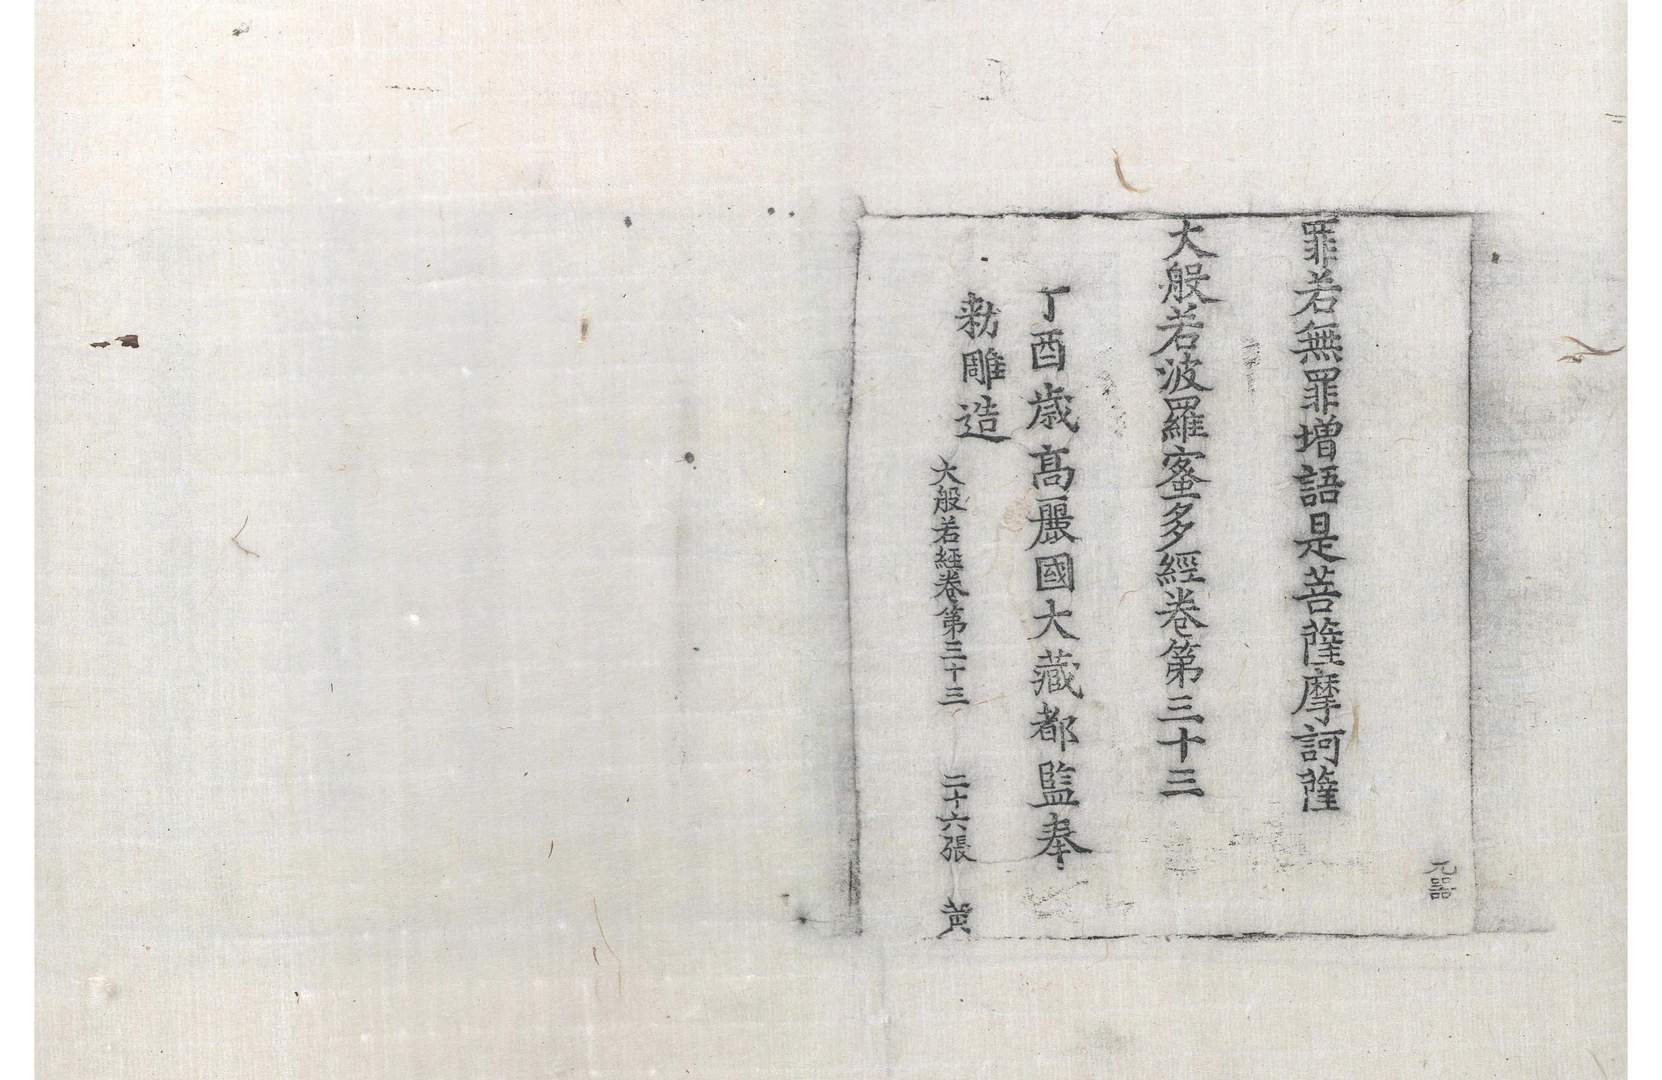 罪若無罪增語是菩薩摩訶薩
大般若波羅蜜多經卷第三十三
丁酉歲高麗國大藏都監奉
勑雕造
大般若經卷第三十三 二十六張 黃